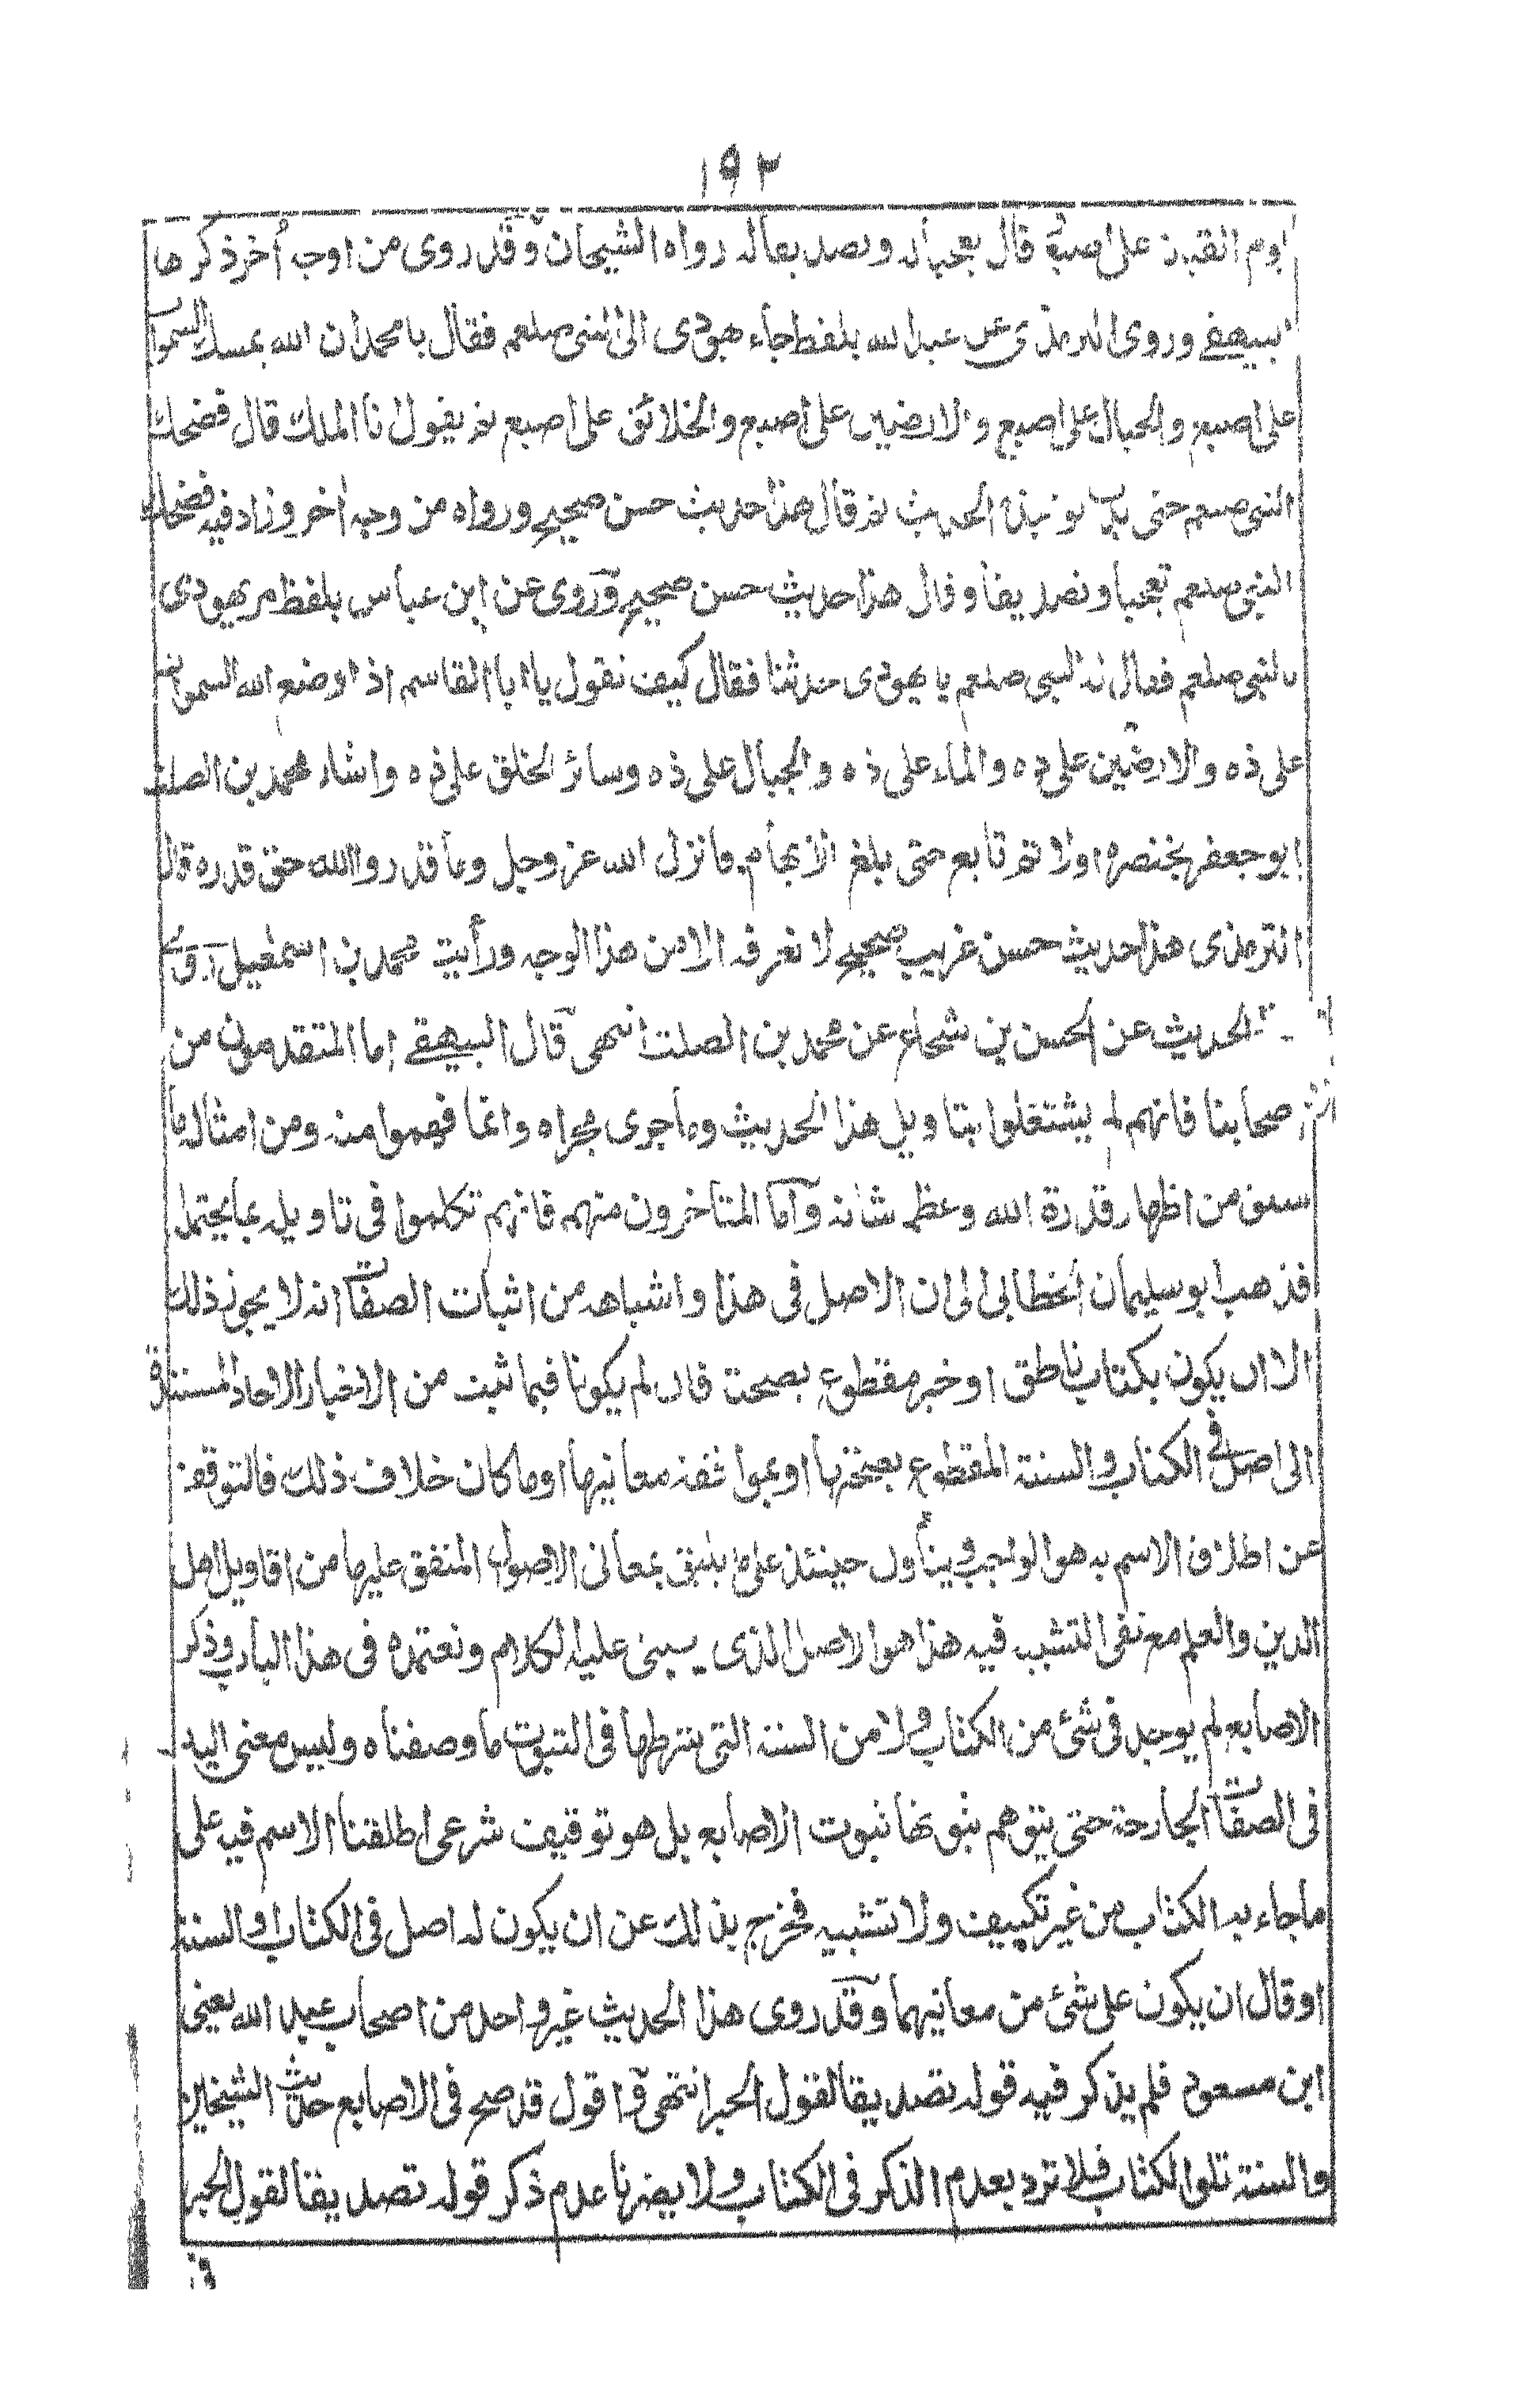 ١٩٢
يوم القيمة على اصبع قال تعجبا له وتصديقا له رواه الشيخان وقد روى من اوجه أخر ذكرها
البيهقي وروى الترمذي عن عبد الله بلفظ جاء يهودى الى النبي صلعم فقال يا محمد ان الله يمسك السموات
على اصبع والجبال على اصبع والارضين على اصبع والخلائق على اصبع ثم يقول انا الملك قال فضحك
النبي صلعم حتى بدت نواجذه الحديث ثم قال هذا حديث حسن صحيح ورواه من وجه أخر وزاد فيه فضحك
النبي صلعم تعجبا وتصديقا وقال هذا حديث حسن صحيح وروى عن ابن عباس بلفظ مر يهودى
بالنبي صلعم فقال له النبي صلعم يا يهودى حدثنا فقال كيف تقول يا ابا القاسم اذا وضع الله السموات
على ذه والارضين على ذه والماء على ذه والجبال على ذه وسائر الخلق على ذه واشار محمد بن الصلت
ابو جعفر بخنصره اولا ثم تابع حتى بلغ الابهام فانزل الله عز وجل وما قدروا الله حق قدره قال
الترمذى هذا حديث حسن غريب صحيح لا نعرفه الا من هذا الوجه ورأيت محمد بن اسمعيل روى
الحديث عن الحسن بن شجاع عن محمد بن الصلت انتهى قال البيهقي اما المتقدمون من
اصحابنا فانهم لم يشتغلوا بتاويل هذا الحديث وما جرى مجراه وانما فهموا منه ومن امثاله ما
سبق من اظهار قدرة الله وعظم شانه وآما المتاخرون منهم فانهم تكلموا فى تاويله بما يحتمل
فذهب ابو سليمان الخطابى الى ان الاصل فى هذا واشباهه من اثبات الصفات انه لا يجوز ذلك
الا ان يكون بكتاب ناطق او خبر مقطوع بصحته فان لم يكونا فبما ثبت من الاخبار الاحاد المستندة
الى اصل فى الكتاب والسنة المقطوع بصحتها او بموافقة معانيها وما كان خلاف ذلك فالتوقف
عن اطلاق الاسم به هو الواجب ويتأول حينئذ على ما يليق بمعانى الاصول المتفق عليها من اقاويل اهل
الدين والعلم مع نفى التشبيه فيه هذا هو الاصل الذى يبنى عليه الكلام ونعتمده فى هذا الباب وذكر
الاصابع لم يوجد فى شئ من الكتاب ولا من السنة التى شرطها فى الثبوت ما وصفناه وليس معنى اليد
فى الصفات الجارحة حتى يتوهم بثبوتها ثبوت الاصابع بل هو توقيف شرعى اطلقنا الاسم فيه على
ما جاء به الكتاب من غير تكييف ولا تشبيه فخرج بذلك عن ان يكون له اصل فى الكتاب والسنة
او قال ان يكون على شئ من معانيهما وقد روى هذا الحديث غير واحد من اصحاب عبد الله يعنى
ابن مسعود فلم يذكر فيه قوله تصديقا لقول الحبر انتهى واقول قد صح فى الاصابع حديث الشيخين
والسنة تلو الكتاب فلا ترد بعدم الذكر فى الكتاب ولا يضرنا عدم ذكر قوله تصديقا لقول الحبر